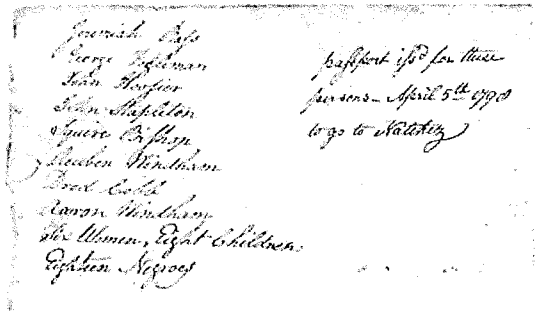 Jeremiah Bass
George Tableman
John Hoosier
John Stapleton
Squire Bishop
Reuben Windham
Dred Cobb
Aaron Windham
Six Women, Eight Children
Eighteen Negroes
passport issd for these
persons - April 5th 1798
to go to Natchez